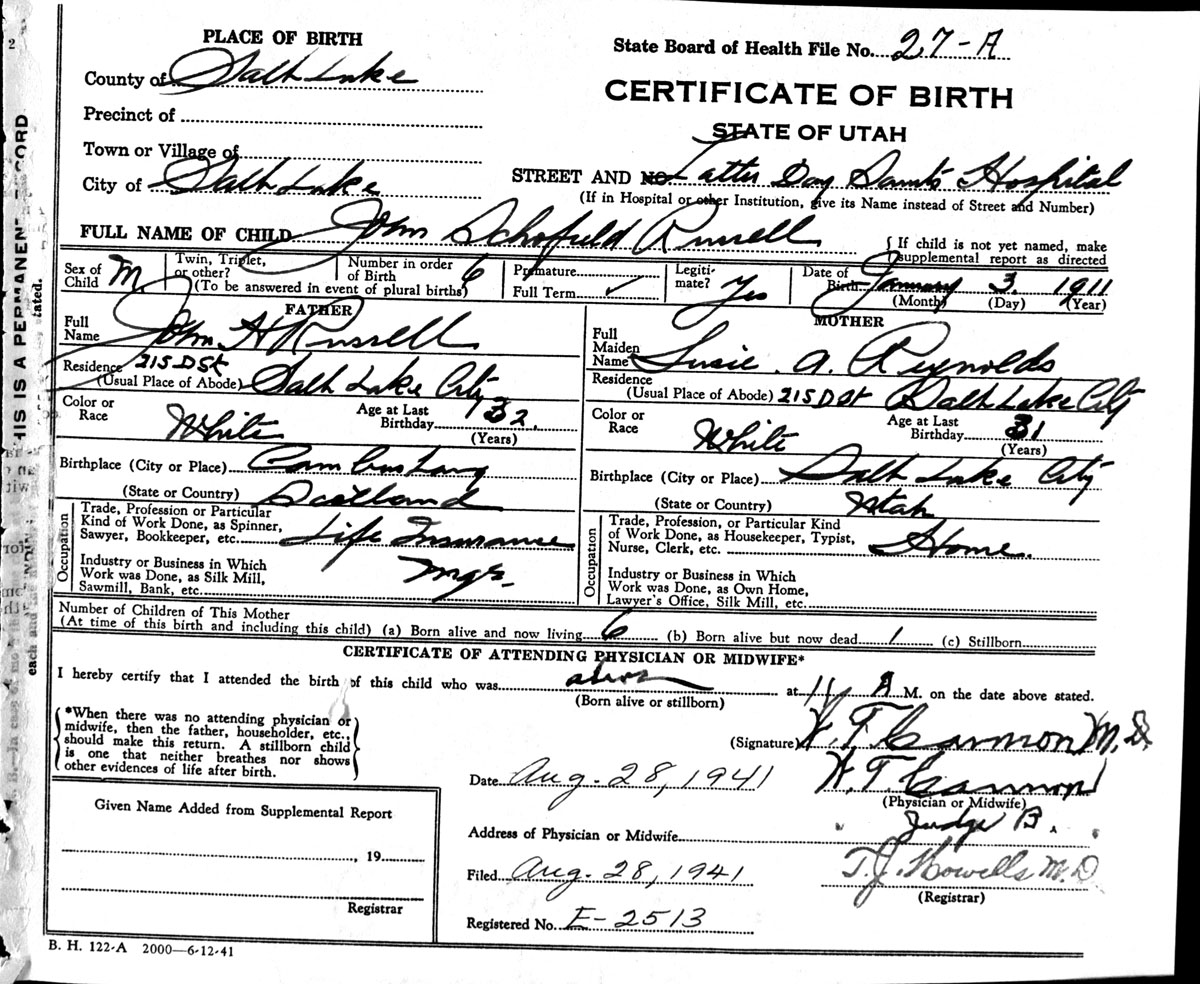 PLACE OF BIRTH
State Board of Health File No. 27-A
County of Salt Lake
CERTIFICATE OF BIRTH
Precinct of
STATE OF UTAH
Town or Village of
City of Salt Lake
STREET AND NO. Latter Day Saints Hospital
(If in Hospital or other Institution, give its Name instead of Street and Number)
FULL NAME OF CHILD John Schofield Russell
{ If child is not yet named, make supplemental report as directed
Sex of Child M
Twin, Triplet, or other?
Number in order of Birth 6
(To be answered in event of plural births)
Premature
Full Term ✓
Legitimate? Yes
Date of Birth January 3 1911
(Month) (Day) (Year)
FATHER
Full Name John H Russell
Residence 215 D St
(Usual Place of Abode) Salt Lake City
Color or Race White
Age at Last Birthday 32
(Years)
Birthplace (City or Place) Cambuslang
(State or Country) Scotland
Occupation
Trade, Profession or Particular
Kind of Work Done, as Spinner,
Sawyer, Bookkeeper, etc. Life Insurance
Industry or Business in Which
Work was Done, as Silk Mill,
Sawmill, Bank, etc. Mgr.
MOTHER
Full Maiden Name Susie A. Reynolds
Residence
(Usual Place of Abode) 215 D St Salt Lake City
Color or Race White
Age at Last Birthday 31
(Years)
Birthplace (City or Place) Salt Lake City
(State or Country) Utah
Occupation
Trade, Profession, or Particular Kind
of Work Done, as Housekeeper, Typist,
Nurse, Clerk, etc. Home.
Industry or Business in Which
Work was Done, as Own Home,
Lawyer's Office, Silk Mill, etc.
Number of Children of This Mother
(At time of this birth and including this child) (a) Born alive and now living 6 (b) Born alive but now dead 1 (c) Stillborn
CERTIFICATE OF ATTENDING PHYSICIAN OR MIDWIFE*
I hereby certify that I attended the birth of this child who was alive at 11 A M. on the date above stated.
(Born alive or stillborn)
*When there was no attending physician or
midwife, then the father, householder, etc.,
should make this return. A stillborn child
is one that neither breathes nor shows
other evidences of life after birth.
(Signature) H. T. Cannon M. D.
Date Aug. 28, 1941
H. T. Cannon
(Physician or Midwife)
Address of Physician or Midwife Judge B.
Filed Aug. 28, 1941
T. J. Howells M. D.
(Registrar)
Registered No. E-2513
Given Name Added from Supplemental Report
, 19
Registrar
B. H. 122-A 2000—6-12-41
THIS IS A PERMANENT RECORD